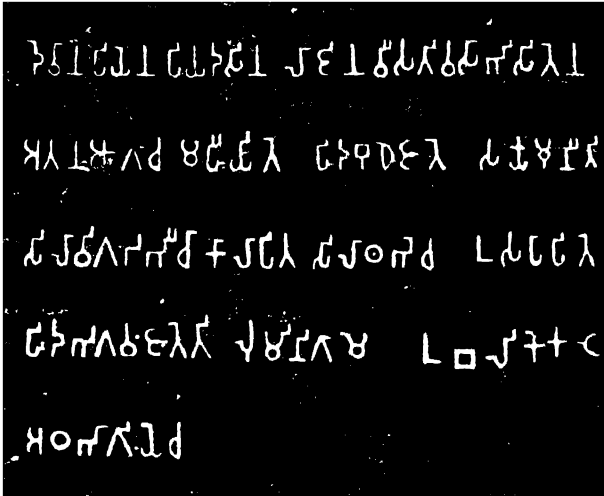 𑀤𑁂𑀯𑀸𑀦𑀧𑀺𑀬𑁂𑀦 𑀧𑀺𑀬𑀤𑀲𑀺𑀦 𑀮𑀸𑀚𑀺𑀦 𑀯𑀻𑀲𑀢𑀺𑀯𑀲𑀸𑀪𑀺𑀲𑀺𑀢𑁂𑀦
𑀅𑀢𑀦𑀆𑀕𑀸𑀘 𑀫𑀳𑀻𑀬𑀺𑀢𑁂 𑀳𑀺𑀤𑀩𑀼𑀥𑁂𑀚𑀸𑀢𑁂 𑀲𑀓𑁆𑀬𑀫𑀼𑀦𑀺𑀢𑀺
𑀲𑀺𑀮𑀸𑀯𑀺𑀕𑀥𑀪𑀺𑀘𑀸𑀓𑀸𑀮𑀸𑀧𑀺𑀢 𑀲𑀺𑀮𑀸𑀣𑀪𑁂𑀘 𑀉𑀲𑀧𑀸𑀧𑀺𑀢𑁂
𑀳𑀺𑀤𑀪𑀕𑀯𑀁𑀚𑀸𑀢𑁂𑀢𑀺 𑀮𑀼𑀁𑀫𑀺𑀦𑀺𑀕𑀸𑀫𑁂 𑀉𑀩𑀮𑀺𑀓𑁂𑀓𑀝𑁂
𑀅𑀞𑀪𑀸𑀕𑀺𑀬𑁂𑀘